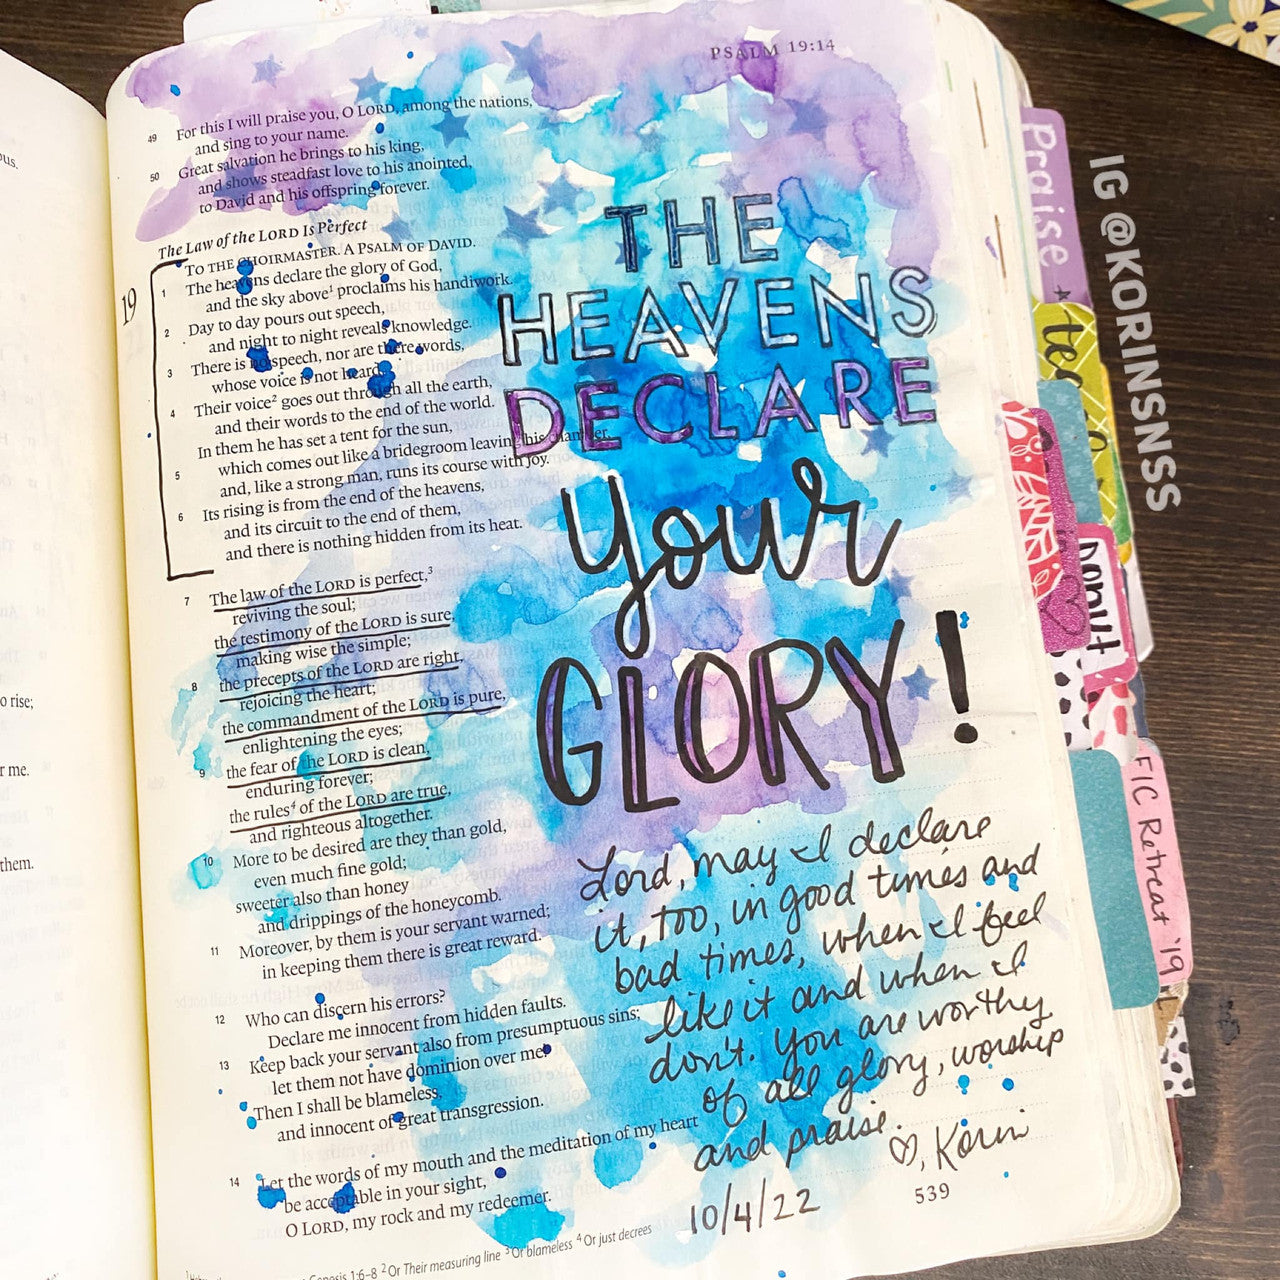 PSALM 19:14
49 For this I will praise you, O LORD, among the nations,
and sing to your name.
50 Great salvation he brings to his king,
and shows steadfast love to his anointed,
to David and his offspring forever.
The Law of the LORD Is Perfect
TO THE CHOIRMASTER. A PSALM OF DAVID.
19
1 The heavens declare the glory of God,
and the sky above¹ proclaims his handiwork.
2 Day to day pours out speech,
and night to night reveals knowledge.
3 There is no speech, nor are there words,
whose voice is not heard.
4 Their voice² goes out through all the earth,
and their words to the end of the world.
In them he has set a tent for the sun,
5 which comes out like a bridegroom leaving his chamber,
and, like a strong man, runs its course with joy.
6 Its rising is from the end of the heavens,
and its circuit to the end of them,
and there is nothing hidden from its heat.
7 The law of the LORD is perfect,³
reviving the soul;
the testimony of the LORD is sure,
making wise the simple;
8 the precepts of the LORD are right,
rejoicing the heart;
the commandment of the LORD is pure,
enlightening the eyes;
9 the fear of the LORD is clean,
enduring forever;
the rules⁴ of the LORD are true,
and righteous altogether.
10 More to be desired are they than gold,
even much fine gold;
sweeter also than honey
and drippings of the honeycomb.
11 Moreover, by them is your servant warned;
in keeping them there is great reward.
12 Who can discern his errors?
Declare me innocent from hidden faults.
13 Keep back your servant also from presumptuous sins;
let them not have dominion over me!
Then I shall be blameless,
and innocent of great transgression.
14 Let the words of my mouth and the meditation of my heart
be acceptable in your sight,
O LORD, my rock and my redeemer.
Genesis 1:6–8 ² Or Their measuring line ³ Or blameless ⁴ Or just decrees
THE
HEAVENS
DECLARE
your
GLORY!
Lord, may I declare
it, too, in good times and
bad times, when I feel
like it and when I
don't. You are worthy
of all glory, worship
and praise.
♡, Korin
10/4/22
539
Praise
Don't
FIC Retreat '19
IG @KORINSNSS
ous.
o rise;
r me.
them.